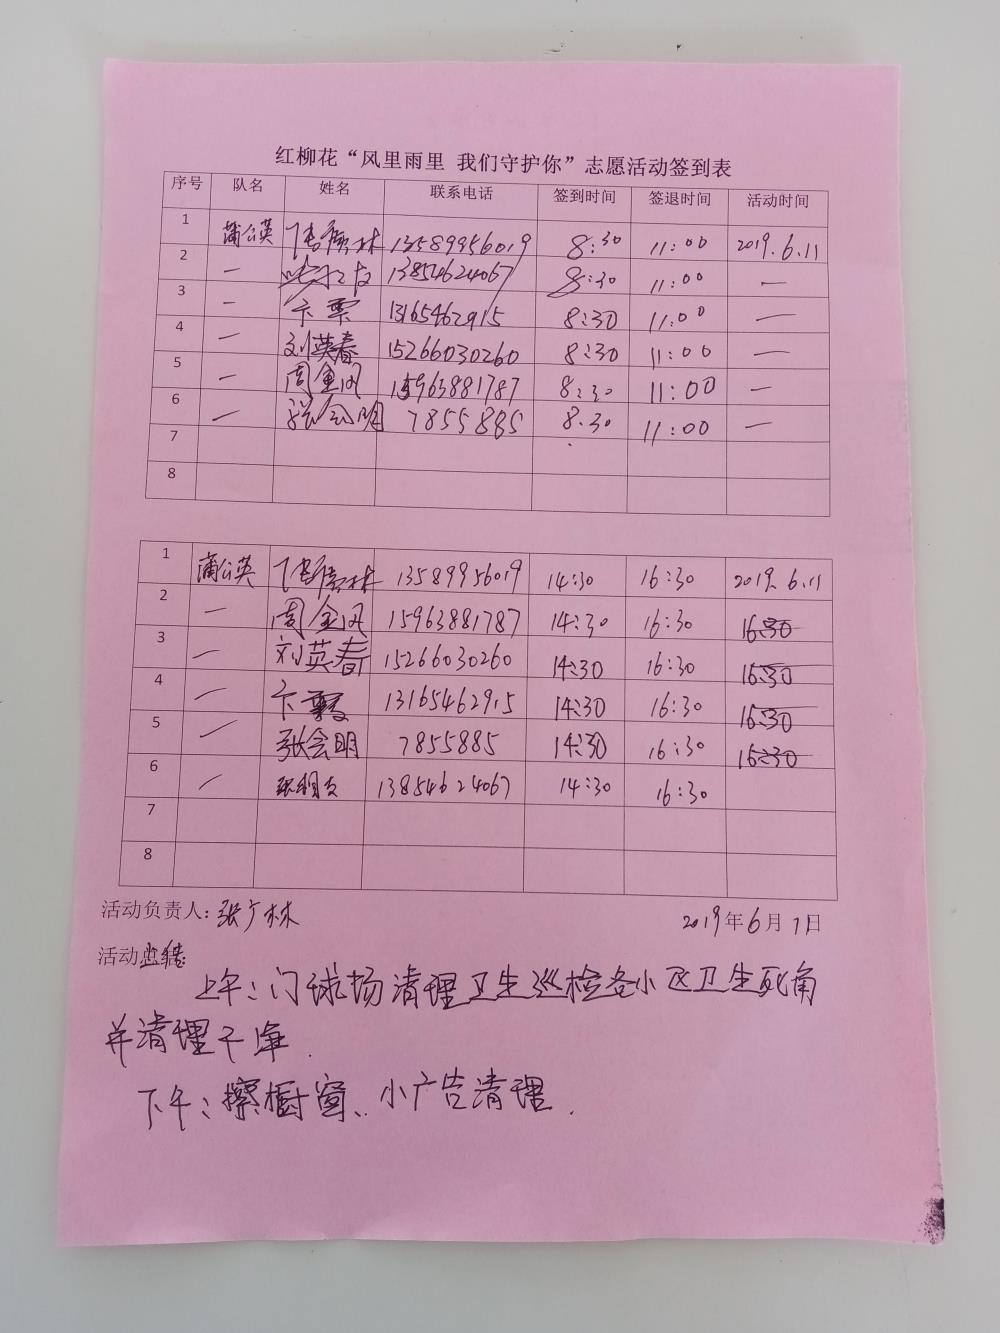 红柳花“风里雨里 我们守护你”志愿活动签到表
序号 队名 姓名 联系电话 签到时间 签退时间 活动时间
1 蒲公英 13589956019 8:30 11:00 2019.6.11
2 一 13854624067 8:30 11:00 一
3 一 卞票 13165462915 8:30 11:00 一
4 一 刘英春 15266030260 8:30 11:00 一
5 一 周金凤 15963881787 8:30 11:00 一
6 一 张会明 7855885 8.30 11:00 一
7
8
1 蒲公英 13589956019 14:30 16:30 2019.6.11
2 一 周金凤 15963881787 14:30 16:30 16:30
3 一 刘英春 15266030260 14:30 16:30 16:30
4 一 卞 13165462915 14:30 16:30 16:30
5 一 张会明 7855885 14:30 16:30 16:30
6 一 13854624067 14:30 16:30
7
8
活动负责人:张广林 2019年6月11日
活动总结:
上午:门球场清理卫生巡检各小区卫生死角
并清理干净.
下午:擦橱窗、小广告清理.